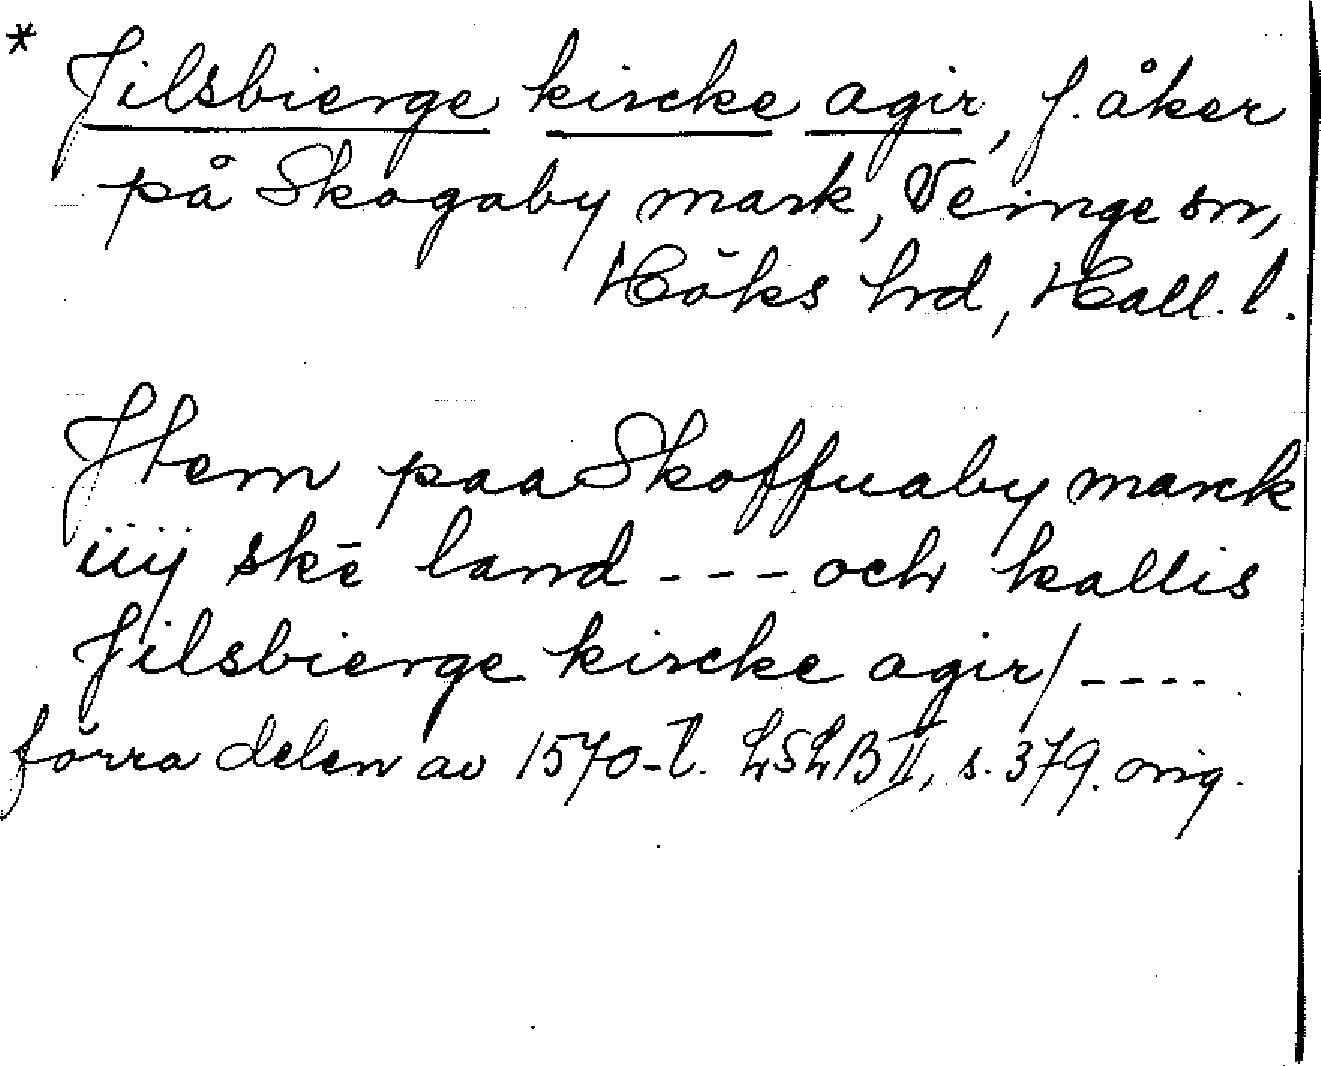 * Jilsbierge kircke agir, f. åker
på Skogaby mark, Veinge sn,
Höks hrd, Hall. l.
Item paa Skoffuaby marck
iiij skē land --- och kallis
Jilsbierge kircke agir/----
förra delen av 1570-t. LSLB II, s. 379. orig.